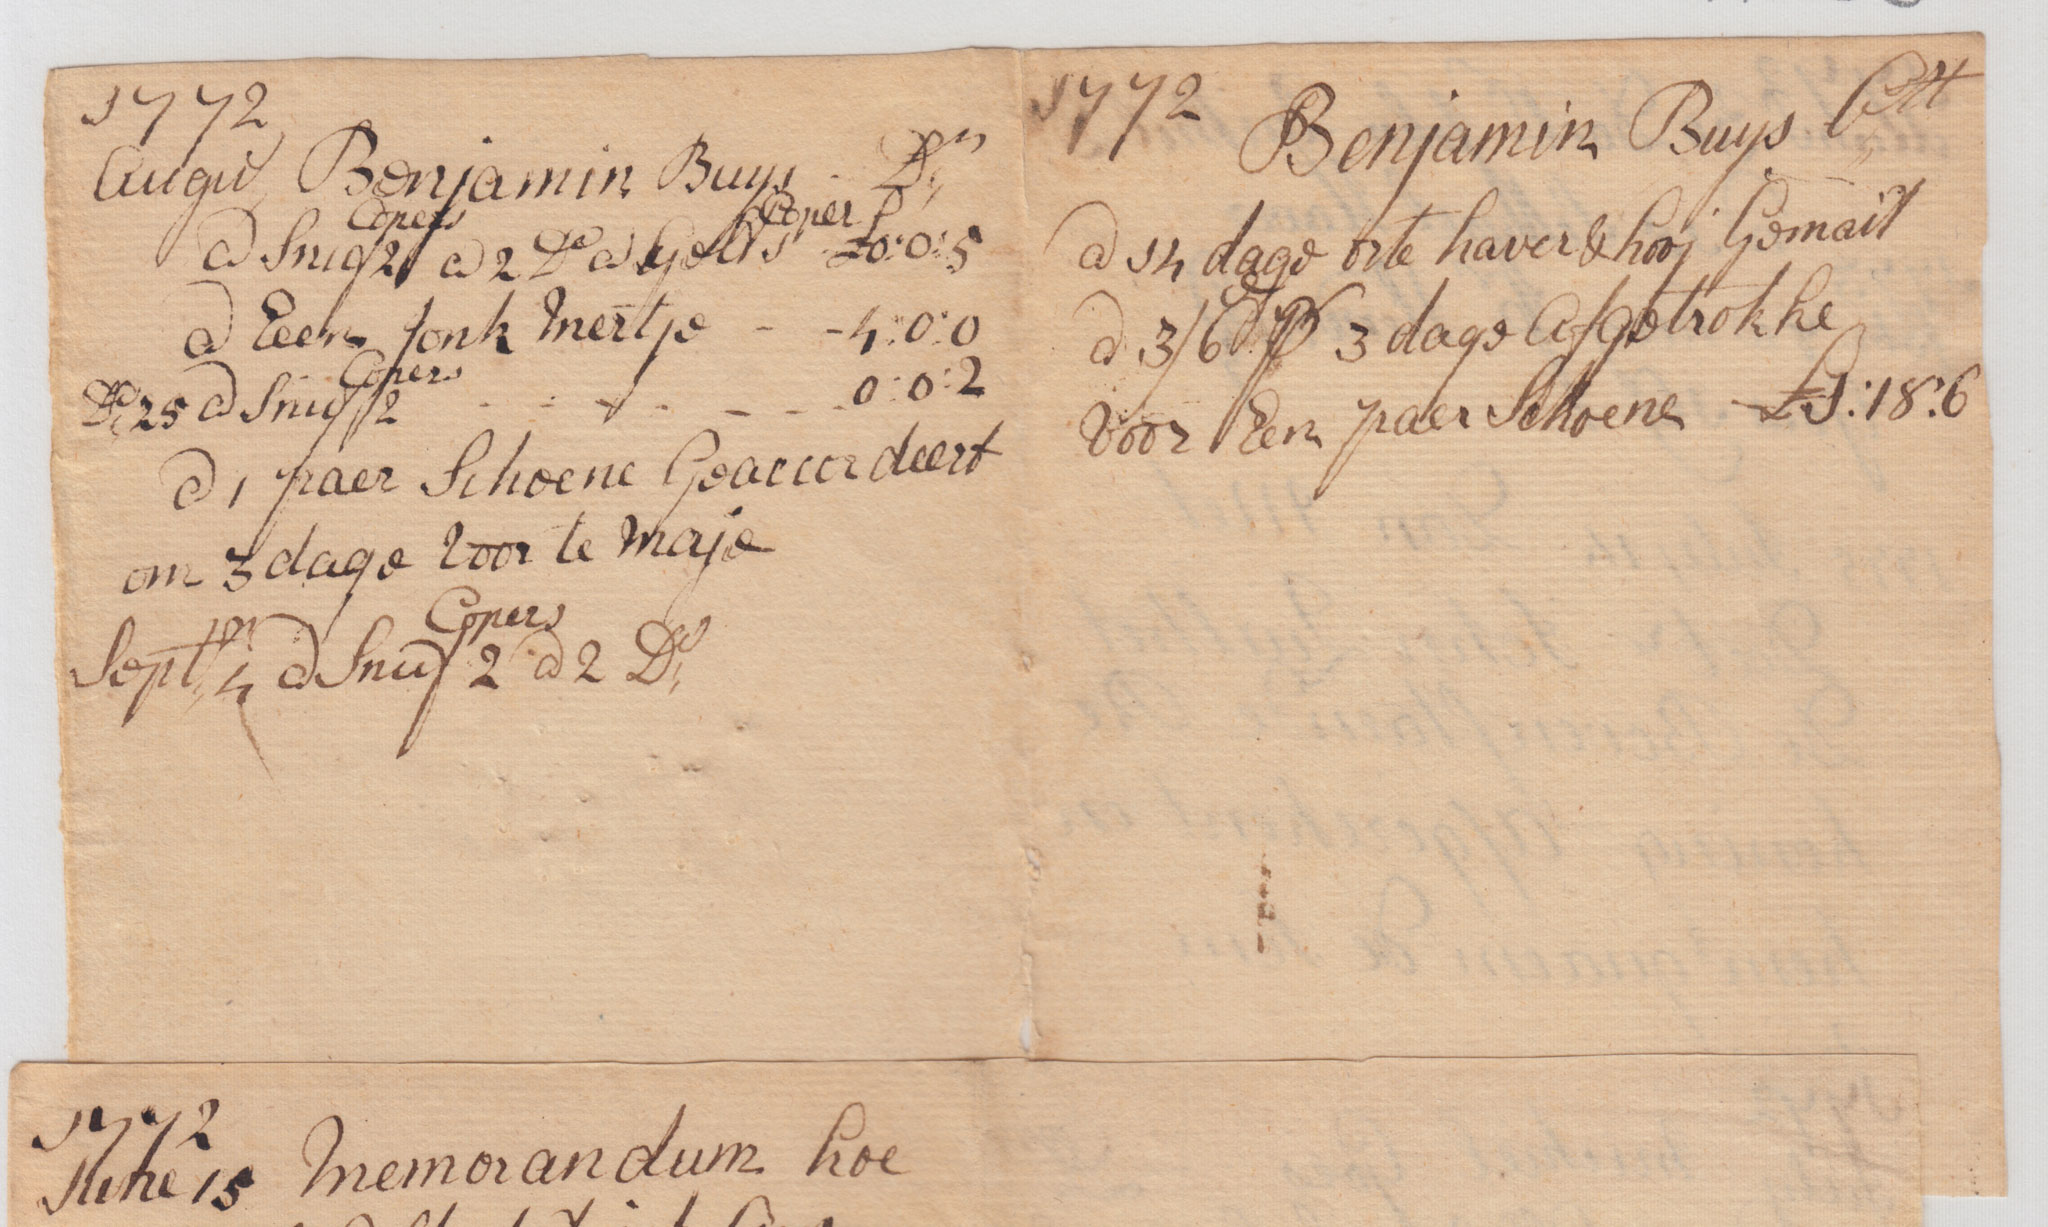 1772
Augu Benjamin Buys Dr
Copers Coper
@ Snuf 2 @ 2 Do @ Gelt £0:0:5
@ Een Jonk mertje - - 4:0:0
Copers
Do 25 @ Snuf 2 - - - - - - - 0:0:2
@ 1 paer Schoene Geaccordeert
om 3 dage voor te maje
Copers
Septm 4 @ Snuf 2 @ 2 Do
1772
Benjamin Buys Ctt
@ 14 dage orte haver & hooj Gemait
@ 3/6d 3 dage Afgetrokke
voor Een paer Schoene £1:18:6
1772
June 15 Memorandum hoe